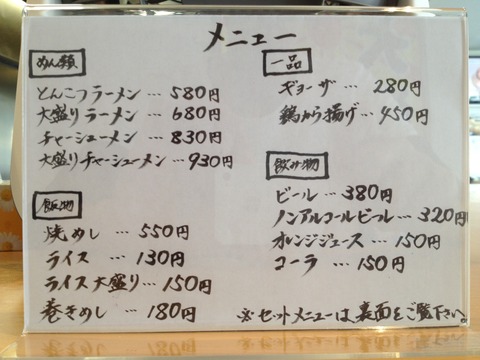 メニュー
めん類
とんこつラーメン … 580円
大盛りラーメン … 680円
チャーシューメン … 830円
大盛りチャーシューメン … 930円
飯物
焼めし … 550円
ライス … 130円
ライス大盛り … 150円
巻きめし … 180円
一品
ギョーザ … 280円
鶏から揚げ … 450円
飲み物
ビール … 380円
ノンアルコールビール … 320円
オレンジジュース … 150円
コーラ … 150円
※セットメニューは裏面をご覧下さい。